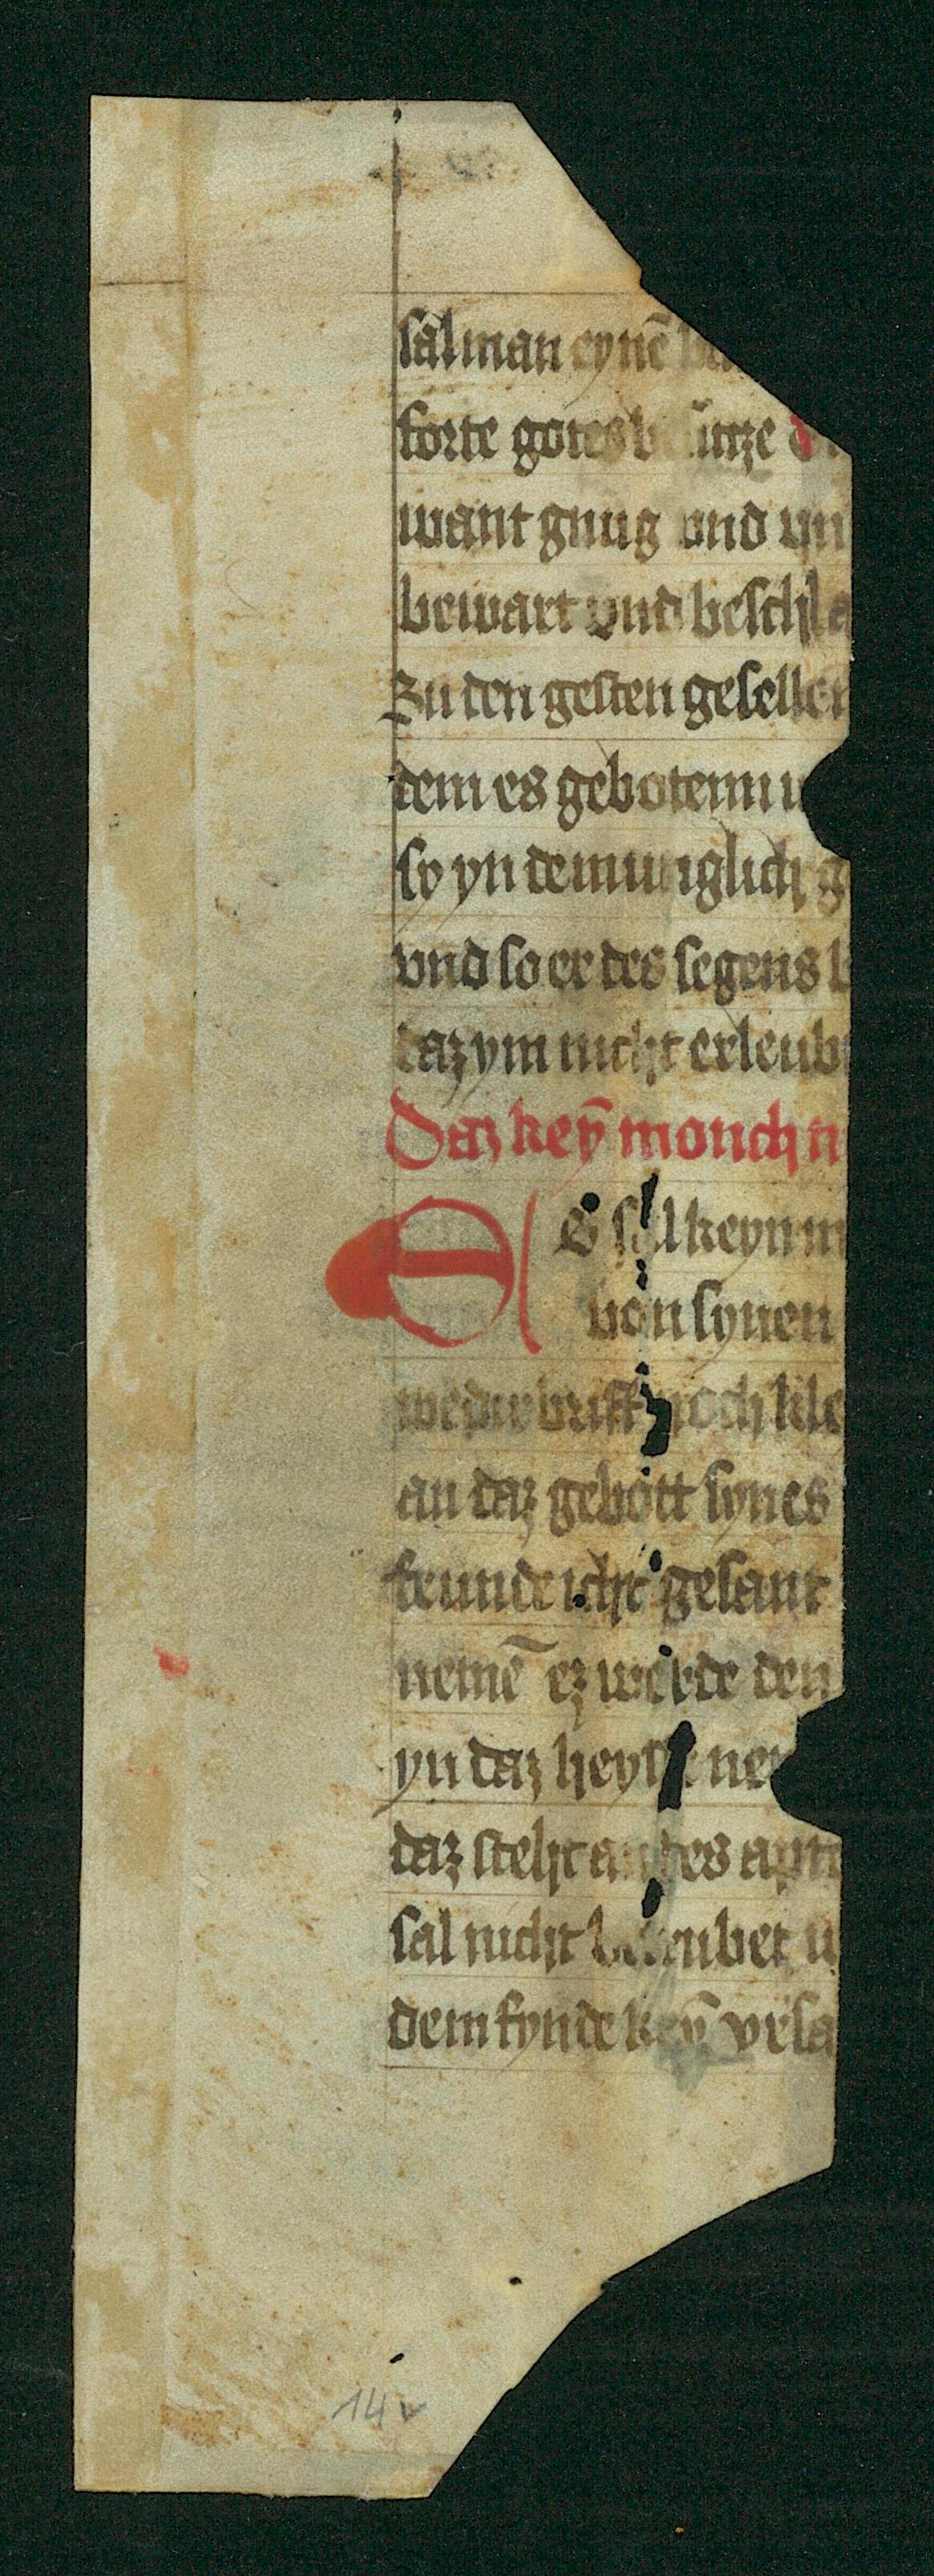 sal man eynē
forte gotes
want gnug vnd vn
bewart vnd beschla
Zu den gesten gesellen
dem es geboten
so yn demutiglich g
vnd so er des segens b
daz ym nicht erleub
Daz keȳ monch n
Es sal keyn m
von synen
weder briff noch kle
an daz gebott synes
frunde icht gesant
nemē ez werde den
yn daz heyſse ne
daz steht an des apt
sal nicht betrubet u
dem fynde keȳ vrsa
14v